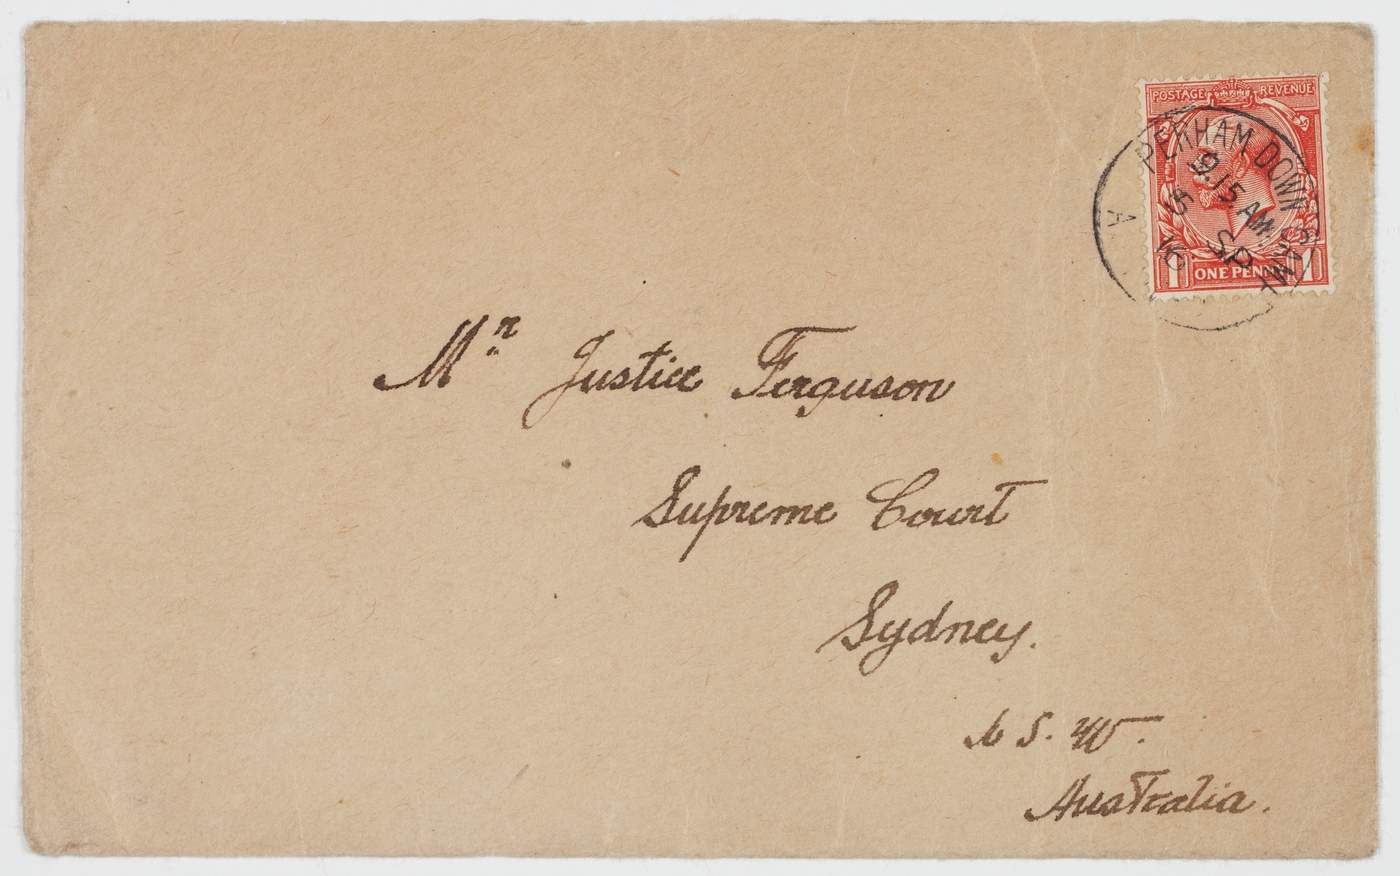 POSTAGE REVENUE
PERHAM DOWN
9.15 AM
5 SP
16
A
1 ONE PENNY 1
Mr Justice Ferguson
Supreme Court
Sydney.
N S. W.
Australia.